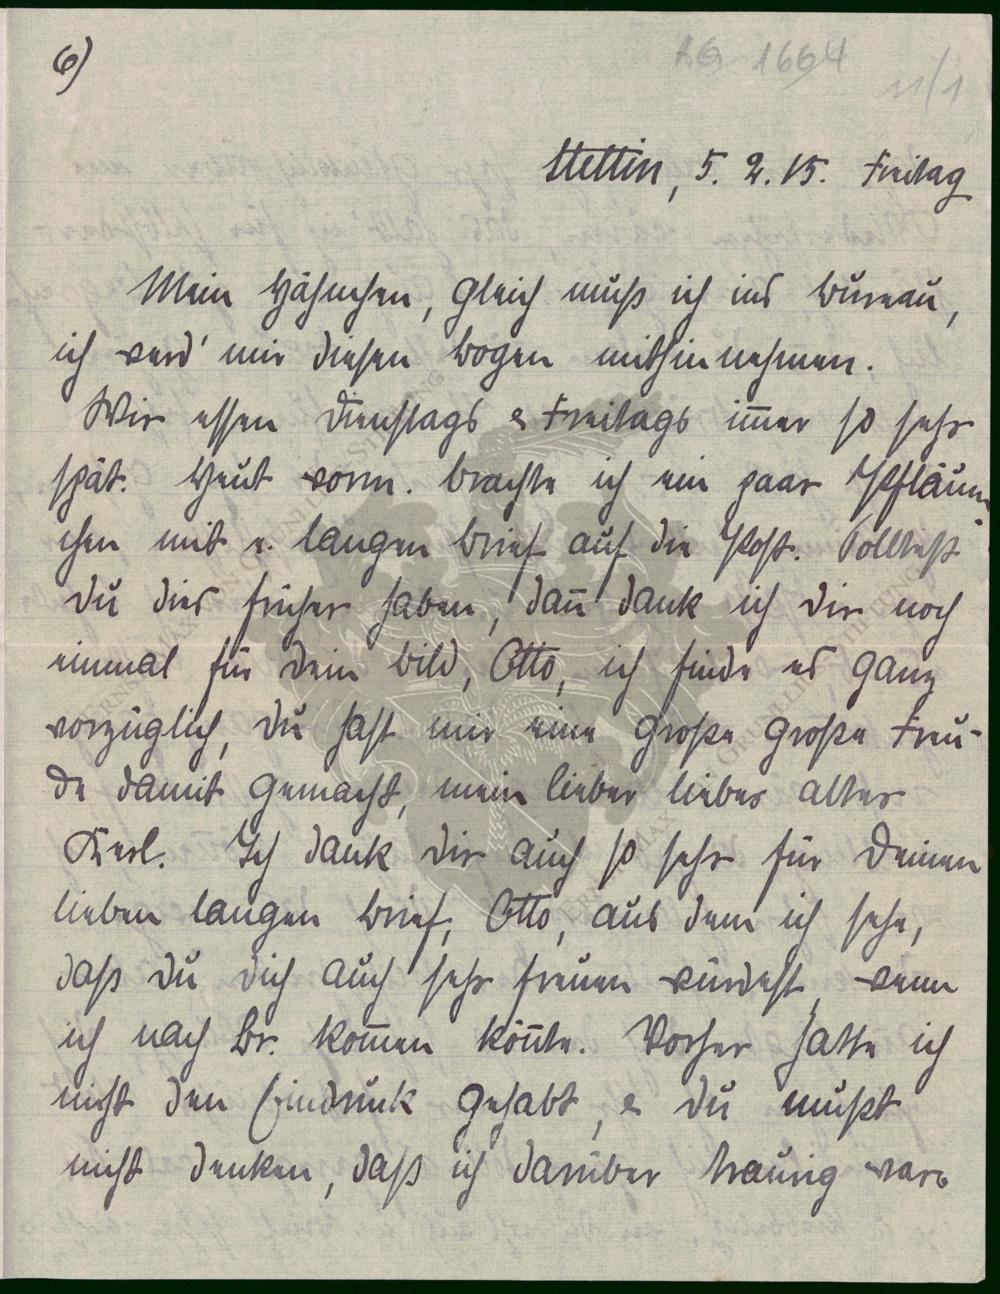 6)
AG 1664
11/1
Stettin, 5. 2. 15. Freitag
Mein Hähnchen, gleich muß ich ins Bureau,
ich werd' mir diesen Bogen mithinnehmen.
Wir essen Dienstags & Freitags im̅er so sehr
spät. Heut vorm. brachte ich ein paar Pfläum-
chen mit e. langen Brief auf die Post. Solltest
Du dies früher haben, dan̅ dank ich Dir noch
einmal für Dein Bild, Otto, ich finde es ganz
vorzüglich, Du hast mir eine große große Freu-
de damit gemacht, mein lieber lieber alter
Kerl. Ich dank Dir auch so sehr für Deinen
lieben langen Brief, Otto, aus dem ich sehe,
daß Du Dich auch sehr freuen würdest, wenn
ich nach Br. kom̅en kön̅te. Vorher hatte ich
nicht den Eindruck gehabt, & Du mußt
nicht denken, daß ich darüber traurig war.